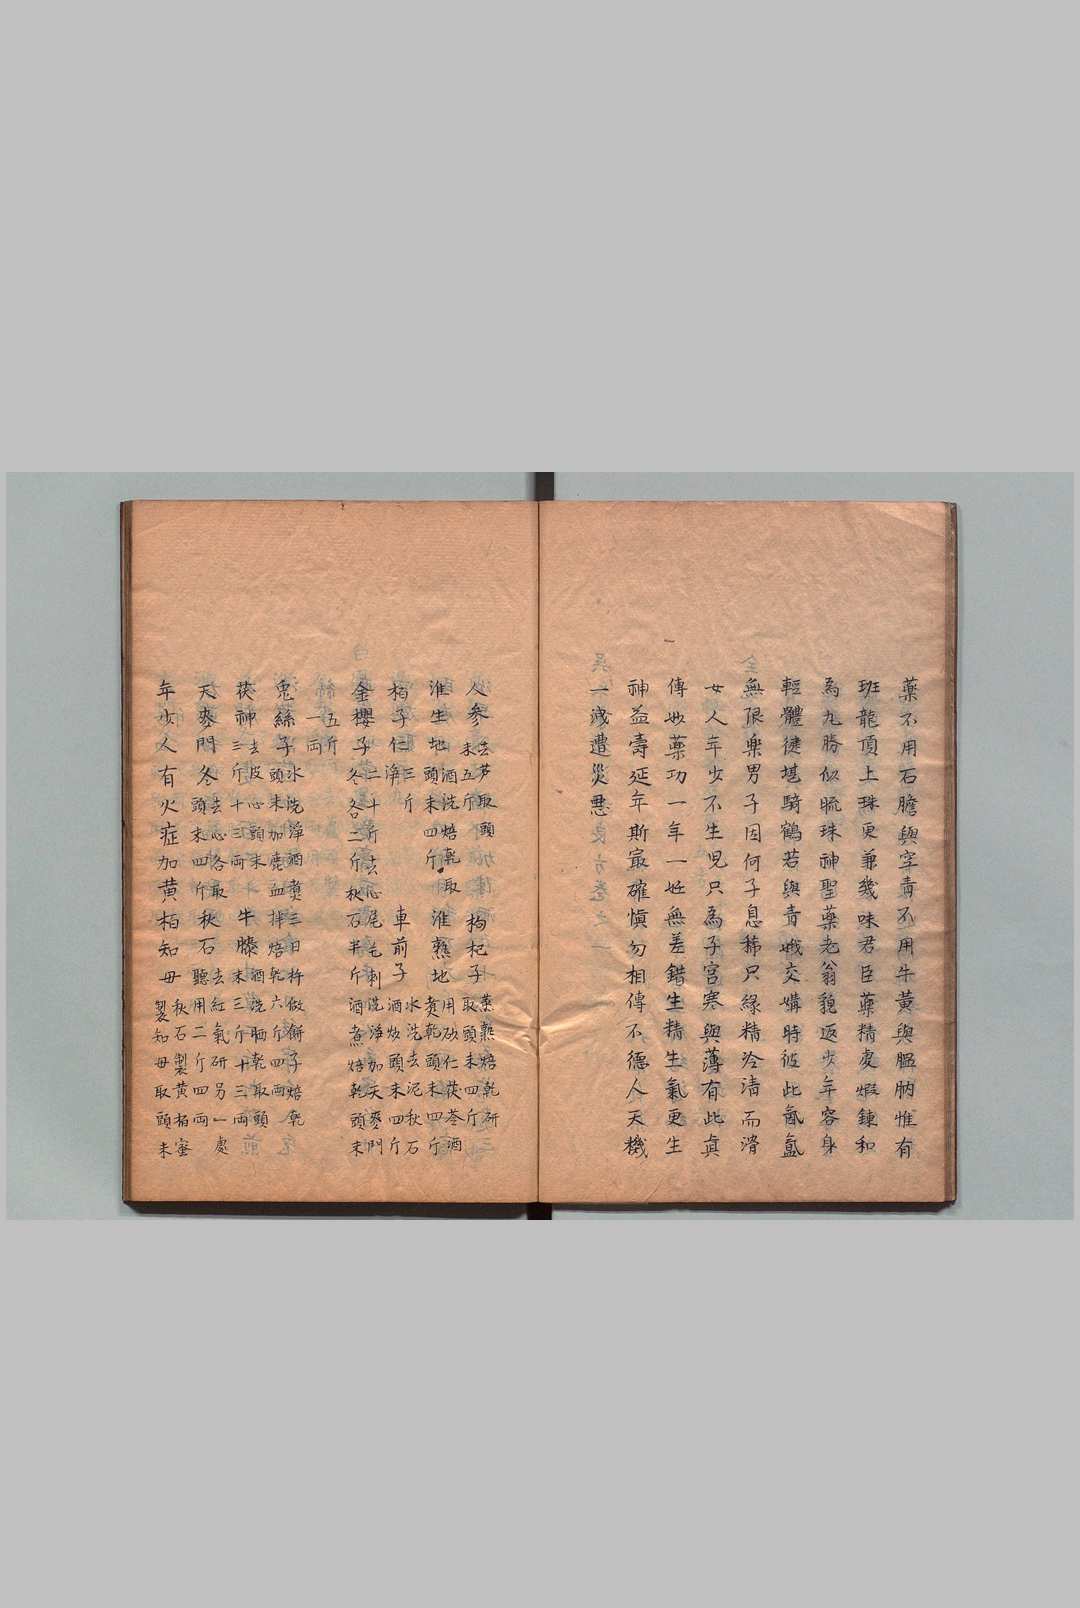 藥不用石膽與宰青不用牛黄與膃肭惟有
班龍頂上珠更兼幾味君臣藥精處煅鍊和
為九勝似䟽珠神聖藥老翁貌返少年容身
輕體徤堪騎鶴若與青娥交媾時彼此氤氲
無限樂男子因何子息稀只緣精冷清而滑
女人年少不生児只為子宫寒與薄有此真
傳妙藥功一年一妊無差錯生精生氣更生
神益壽延年斯㝡確慎勿相傳不德人天機
一洩遭災悪
人參去芦取頭末五斤 枸杞子蒸熟焙乾研取頭末四斤
淮生地酒洗焙乾取頭末四斤 淮熟地用砂仁茯苓酒煑乾頭末四斤
栢子仁三斤淨 車前子水洗去泥秋石酒炒頭末四斤
金櫻子二十斤去心尾毛刺洗淨加天麥門冬各三斤秋石半斤酒煮焙乾頭末
五斤一両
兎絲子水洗淨酒煑三日杵做餅子焙乾頭末加鹿血拌焙乾六斤四両
茯神去皮心頭末三斤十三両 牛膝酒洗晒乾取頭末三斤十三両
天麥門冬去心各取頭末四斤 秋石去紅氣研另一處聽用二斤四両
年少人有火症加黄栢知母秋石製黄栢蜜製知母取頭末